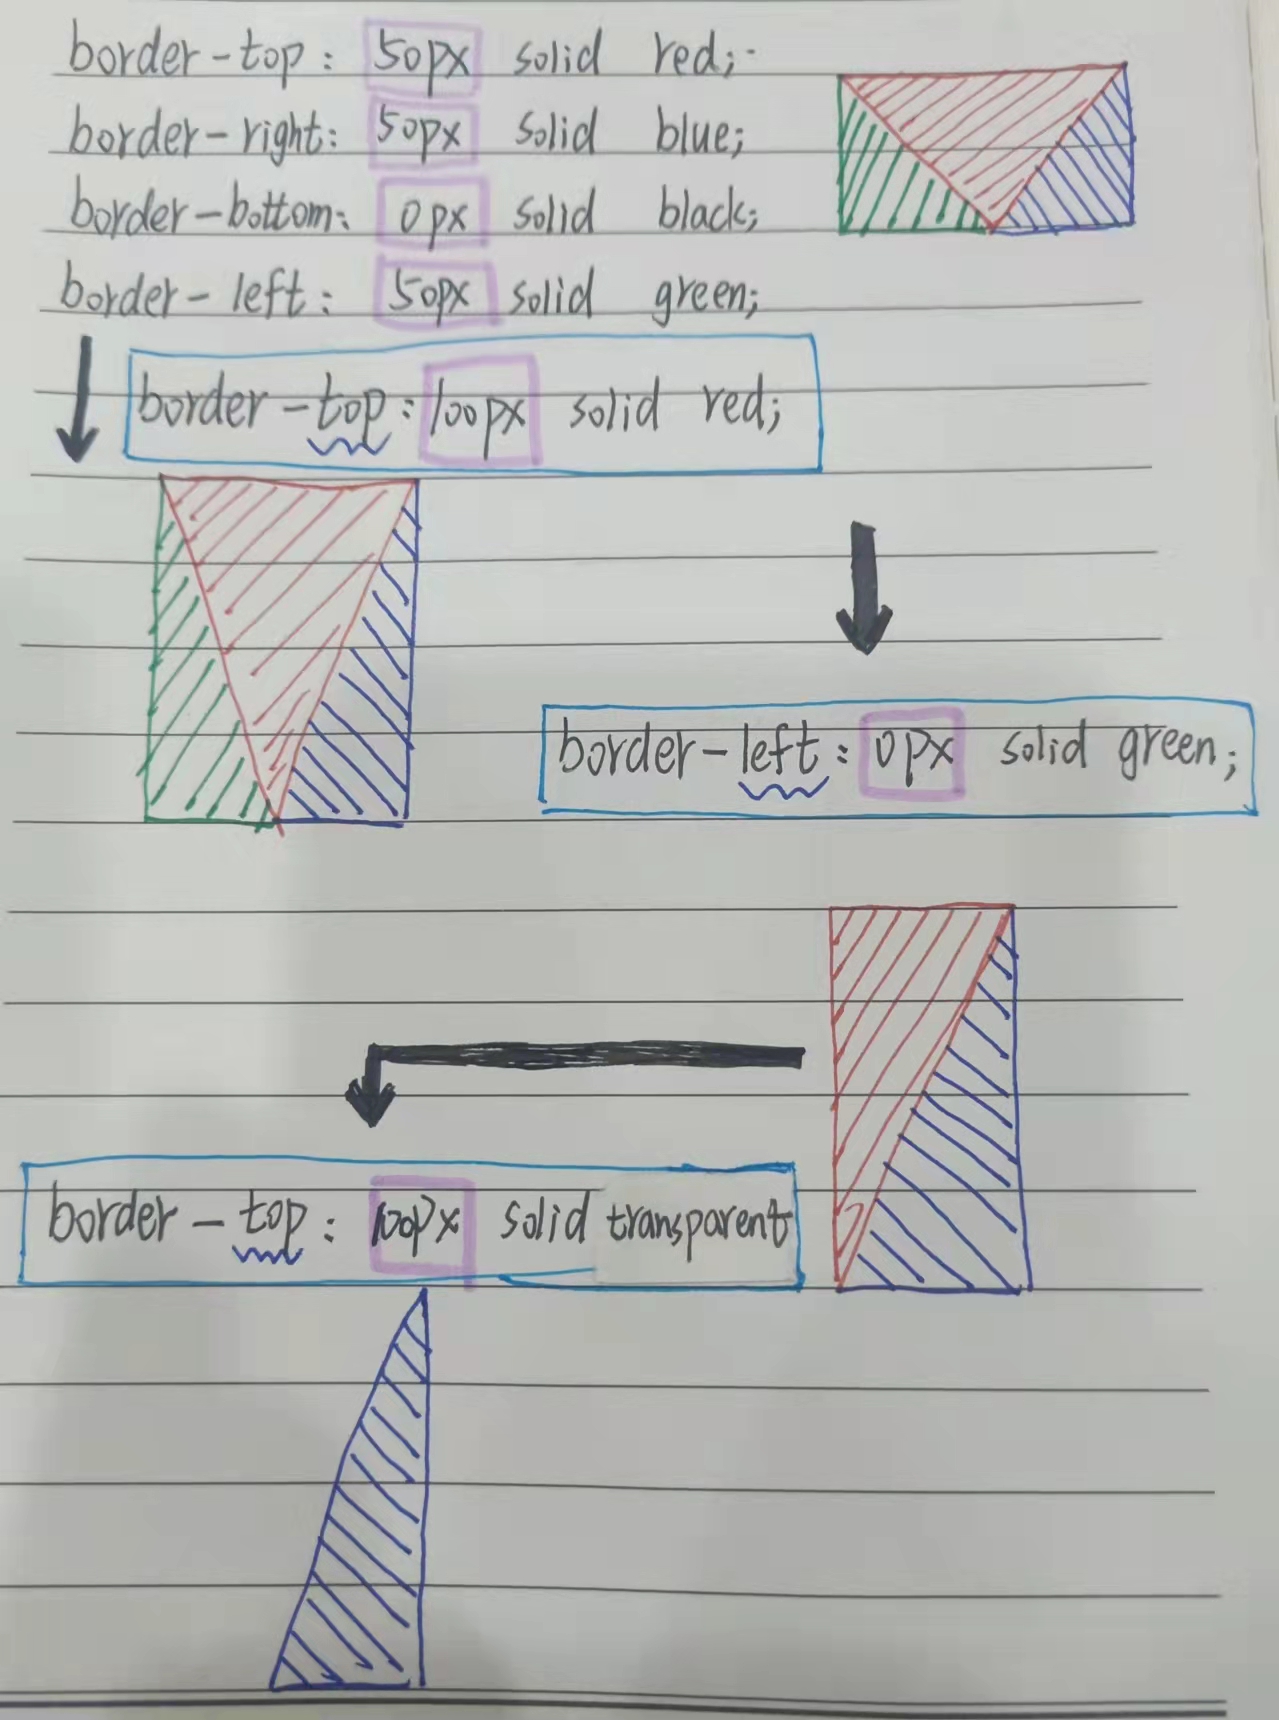 border-top: 50px solid red;
border-right: 50px solid blue;
border-bottom: 0px solid black;
border-left: 50px solid green;
border-top: 100px solid red;
border-left: 0px solid green;
border-top: 100px solid transparent